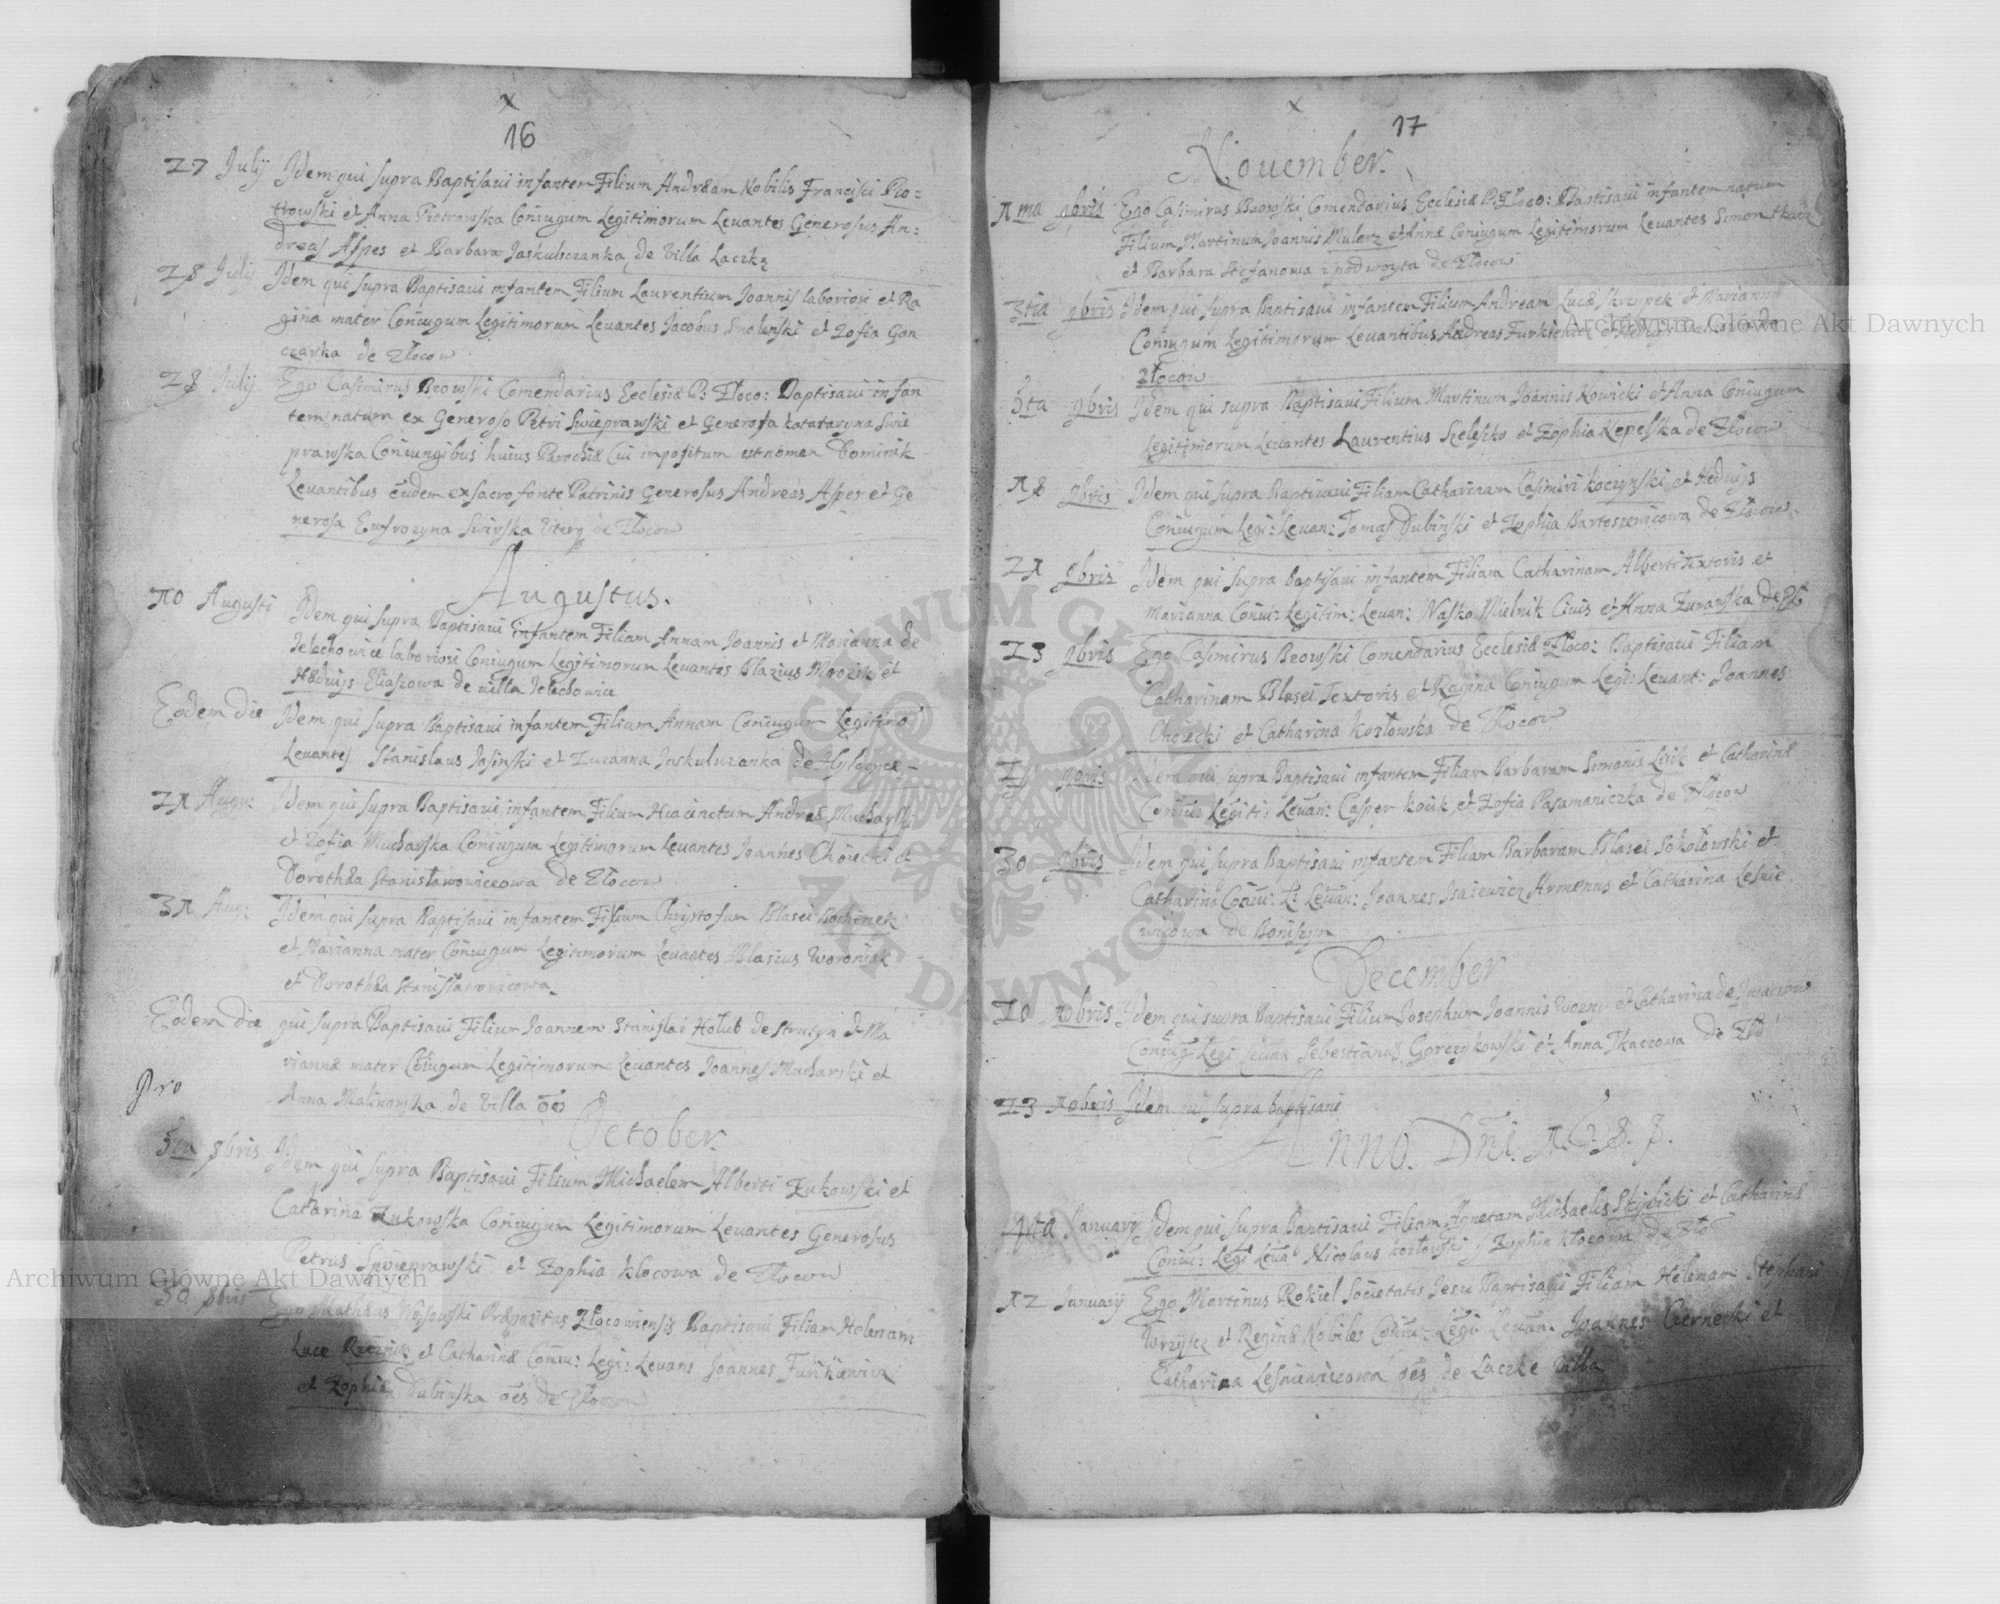 x
16
27 July Idem qui supra Baptisaui infantem Filium Andræam Nobilis Francisci Pio=
trowski et Anna Piotrowska Coniugum Legitimorum Leuantes Generosus An=
dreas Aspes et Barbara Jaskulczanka de villa Laczką
28 July Idem qui supra Baptisaui infantem Filium Laurentium Joannis laboriosi et Ra
gina mater Coniugum Legitimorum Leuantes Jacobus Smolenski et Zofia Gan
czarka de Złocow
28 July Ego Casimirus Brzowski Comendarius Ecclesiæ P: Złoco: Baptisaui infan
tem natum ex Generoso Petri Swieprawski et Generosa Katataryna Swie
prawska Coniungibus huius Parochiæ Cui impositum est nomen Dominik
Leuantibus eudem ex sacro fonte Patrinis Generosus Andreas Aspes et Ge
nerosa Eufrozyna Swirska de Złocow
Augustus.
10 Augusti Idem qui supra Baptisaui infantem Filiam Annam Joannis et Marianna de
Jelechowice laboriosi Coniugum Legitimorum Leuantes Blazius Mrozik et
Hedwijs Eliaszowa de villa Jelechowice
Eodem die Idem qui supra Baptisaui infantem Filiam Annam Coniugum Legitimo
Leuantes Stanislaus Jasinski et Zuzanna Jaskulczanka de
21 Augu: Idem qui supra Baptisaui infantem Filium Hiacinctum Andreæ Mucharski
et Zofia Mucharska Coniugum Legitimorum Leuantes Joannes Choiecki et
Dorothea Stanisławowiczowa de Złocow
31 Aug: Idem qui supra Baptisaui infantem Filium Christofum Blasei Bochenek
et Marianna mater Coniugum Legitimorum Leuantes Blasius Woroniak
et Dorothea Stanisławowicowa
Eodem die qui supra Baptisaui Filium Joannem Stanislai Hołub de Strutyn et Ma
riannæ mater Coiugum Legitimorum Leuantes Joannes Mucharski et
Anna Malinowska de villa oēs
Pro
October.
5ta 8bris Idem qui supra Baptisaui Filium Michaelem Alberti Zukowski et
Catarina Zukowska Coniugum Legitimorum Leuantes Generosus
Petrus Swieprawski et Zophia Kłocowa de Złocow
30 8bris Ego Mathæus Præpositus Złocowiensis Baptisaui Filiam Helenam
Lucæ Rzeznik et Catharinæ Coniu: Legi: Leuans Joannes Furikiewicz
et Zophia Dubinska oēs de Złocow
x
17
Nouember.
1ma 9bris Ego Casimirus Brzowski Comendarius Ecclesiæ P. Złoco: Baptisaui infantem natum
Filium Martinum Joannis Mularz et Annæ Coniugum Legitimorum Leuantes Simon tkacz
et Barbara Stefanowa z podwoyta de Złocow
3tia 9bris Idem qui supra Baptisaui infantem Filium Andream Lucæ Skrzypek et Marianna
Coniugum Legitimorum Leuantibus Andreas Furkiewicz et
Złocow
5ta 9bris Idem qui supra Baptisaui Filium Martinum Joannis Kowicki et Anna Coniugum
Legitimorum Leuantes Laurentius Szeleszko et Zophia Rzepeska de Złocow
18 9bris Idem qui supra Baptizaui Filiam Catharinam Casimiri Koczynski et Hedwijs
Coniugum Legi: Leuan: Tomas Dubinski et Zophia Bartoszewicowa de Złocow
21 9bris Idem qui supra baptisaui infantem Filiam Catharinam Alberti Textoris et
Marianna Coniu: Legitim: Leuan: Nasko Mielnik Ciuis et Anna Zurawska de Zło
23 9bris Ego Casimirus Brzowski Comendarius Ecclesiæ Złoco: Baptisaui Filiam
Catharinam Blasei Textoris et Ragina Coniugum Legi: Leuant: Joannes
Choiecki et Catharina Kozłowska de Złocow
9bris Idem qui supra Baptisaui infantem Filiam Barbaram Simonis Lisik et Catharinæ
Coniu: Legiti: Leuan: Casper Kocik et Zofia Pasamaniczka de Złocow
30 9bris Idem qui supra Baptisaui infantem Filiam Barbaram Blasei Sokołowski et
Catharina Coniu: Leuan: Joannes Isaiewicz Armenus et Catharina Lesnie
wicowa de Boniszyn
December
10 10bris Idem qui supra Baptisaui Filium Josephum Joannis Wozny et Catharina de
Coniug Legi Leuan Sebestianus Gorczykowski et Anna Tkaczowa de Zło
23 10bris Idem qui supra baptisaui
Anno. Dni. 1688.
4ta January Idem qui supra Baptisaui Filiam Agnetam Michaelis Skibicki et Catharinæ
Coniu: Legi Leua Nicolaus Kozłowski et Zophia Kłocowa de Zło
12 January Ego Martinus Rokiel Societatis Jesu Baptisaui Filiam Helenam Stephani
et Reginæ Nobiles Coniu: Legi: Leuan: Joannes Czernecki et
Catharina Lesniewiczowa oēs de Laczke villa
Archiwum Główne Akt Dawnych
Archiwum Główne Akt Dawnych
ARCHIWUM GŁÓWNE AKT DAWNYCH